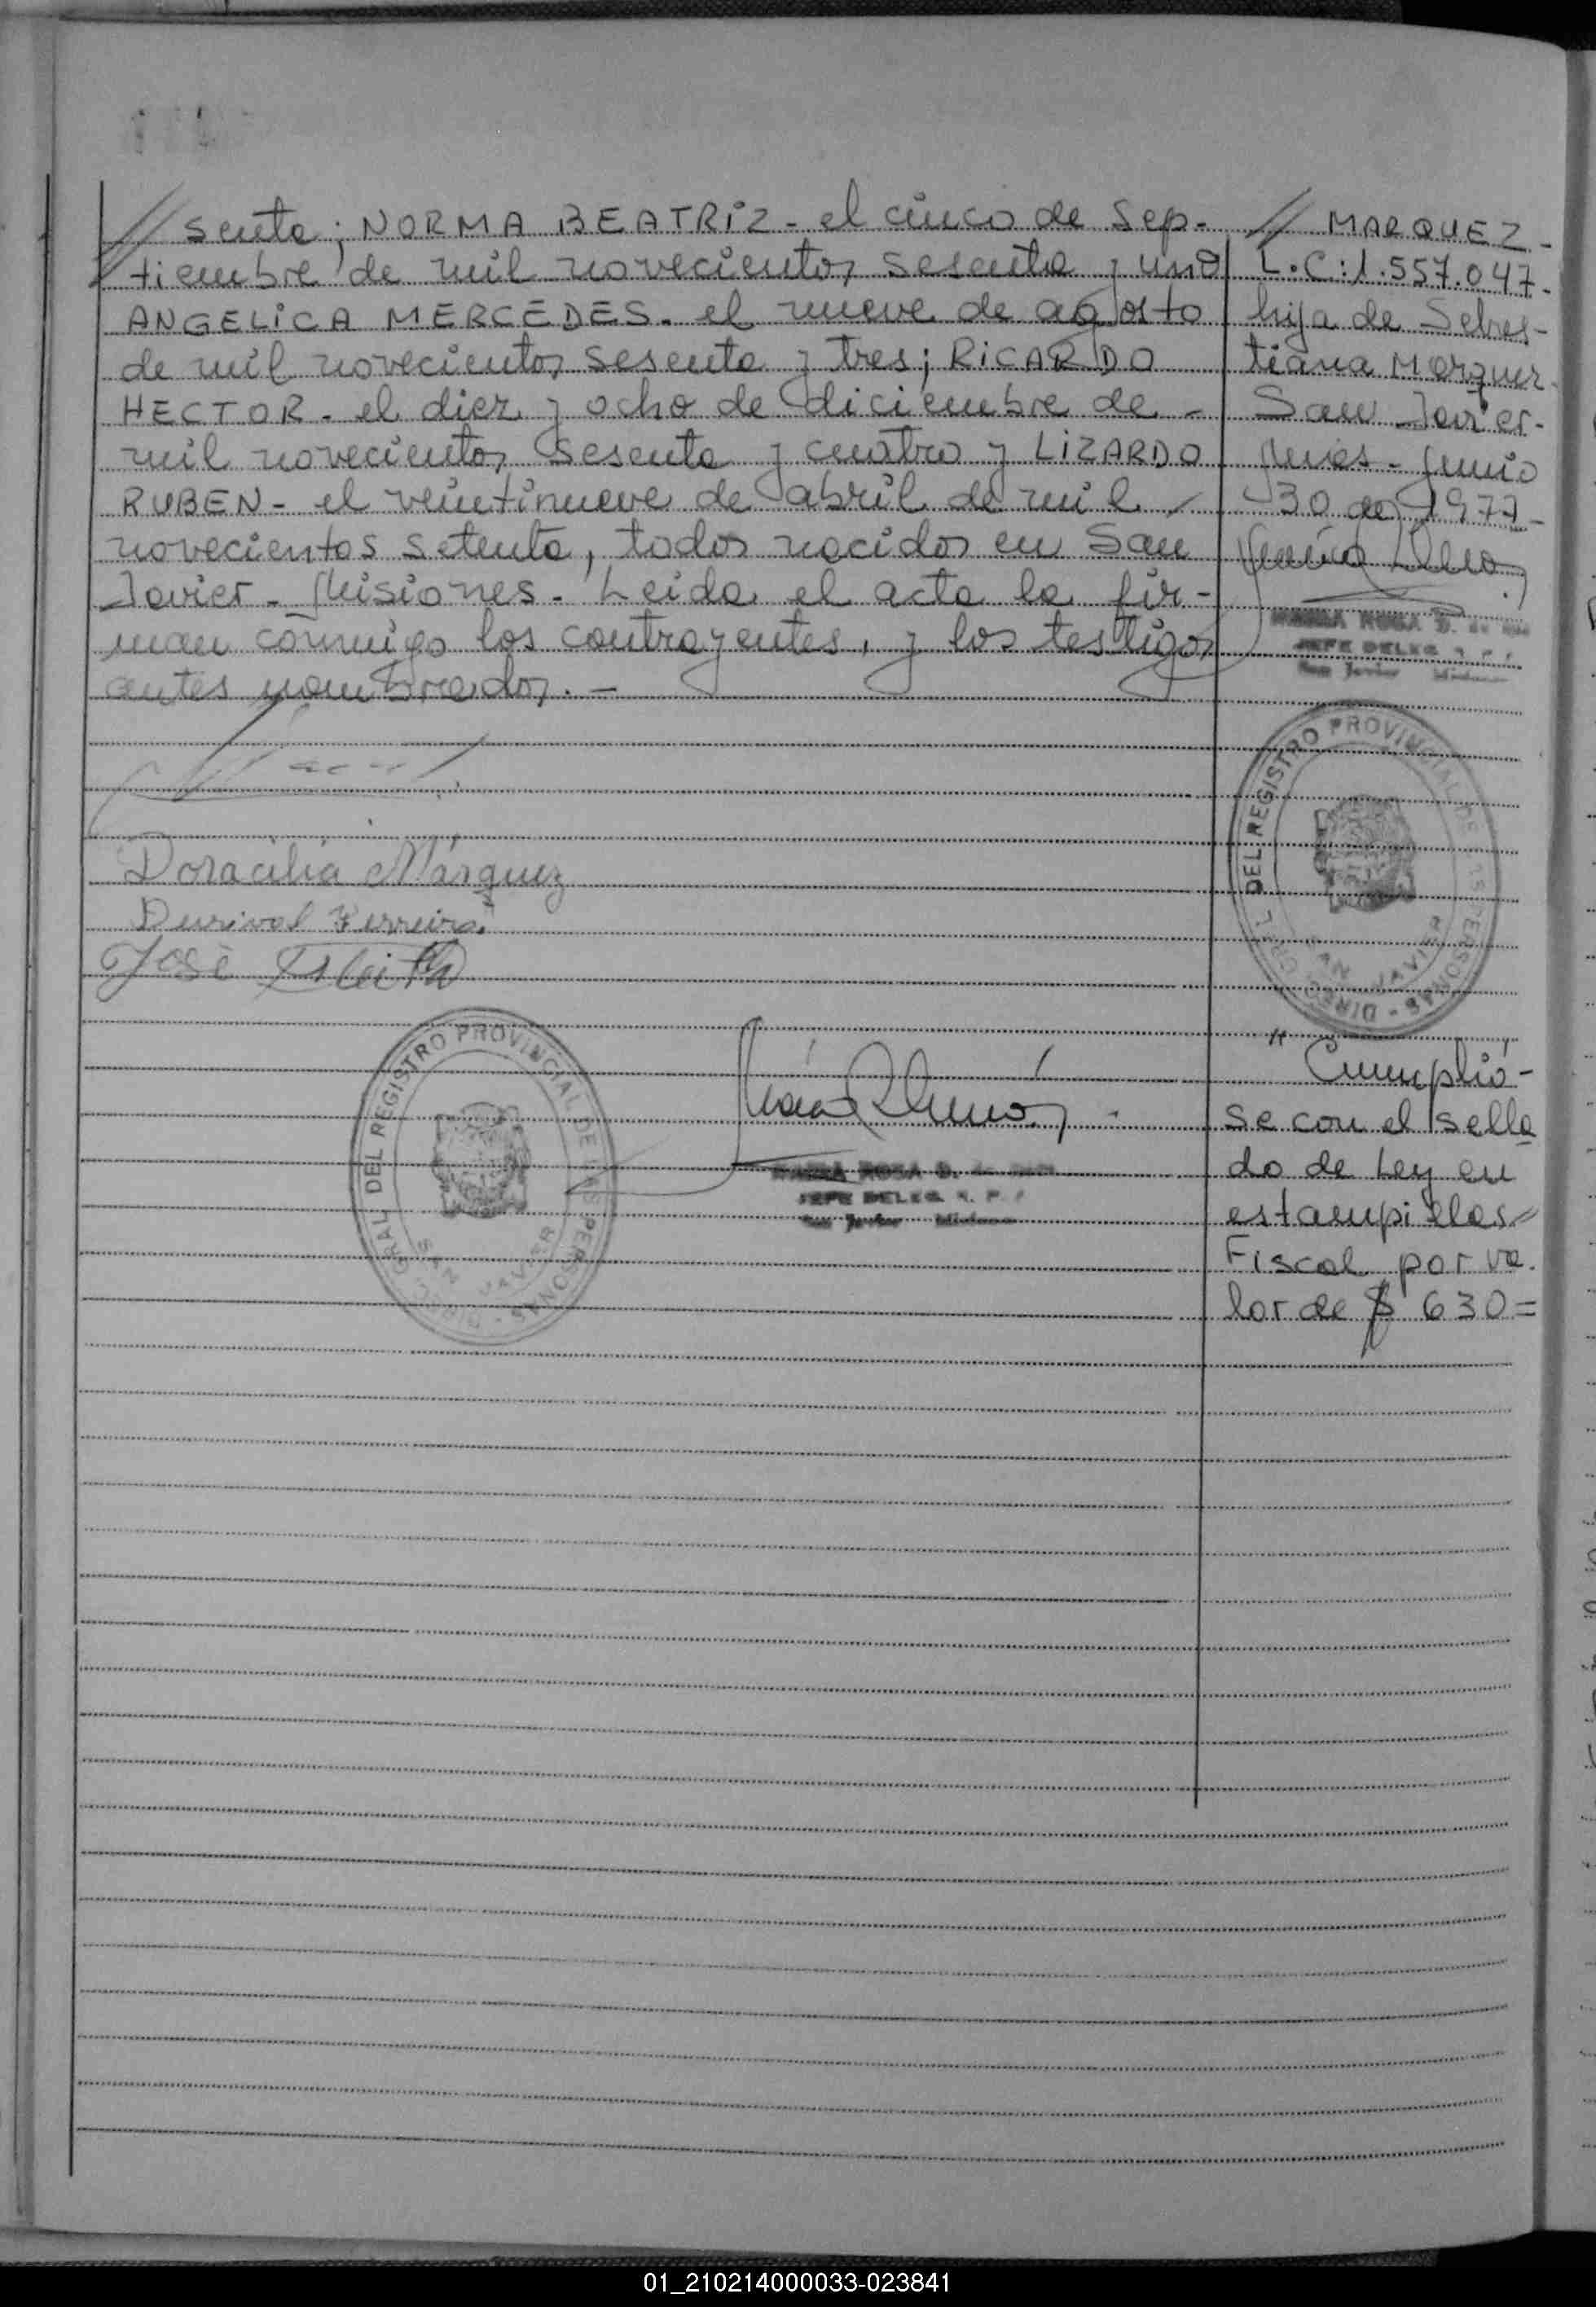 // senta; NORMA BEATRIZ - el cinco de Sep-
tiembre de mil novecientos sesenta y uno
ANGELICA MERCEDES - el nueve de agosto
de mil novecientos sesenta y tres; RICARDO
HECTOR - el diez y ocho de diciembre de -
mil novecientos sesenta y cuatro y LIZARDO
RUBEN - el veintinueve de abril de mil
novecientos setenta, todos nacidos en San
Javier - Misiones. Leida el acta la fir-
man conmigo los contrayentes, y los testigos
antes nombrados. -
Doracilia Marquez
Durival Ferreira
José
DIREC. GRAL. DEL REGISTRO PROVINCIAL DE LAS PERSONAS -
SAN JAVIER
MARIA ROSA D. de
JEFE DELEG. R. P.
San Javier Misiones
// MARQUEZ -
L.C: 1.557.047 -
hija de Sebas-
tiana Marquez
San Javier -
Mnes - Junio
30 de 1977 -
MARIA ROSA D. de
JEFE DELEG. R. P.
San Javier Misiones
DIREC. GRAL. DEL REGISTRO PROVINCIAL DE LAS PERSONAS -
SAN JAVIER
" Cumplió -
se con el sella
do de Ley en
estampillas
Fiscal por va.
lor de $ 630 =
01_210214000033-023841